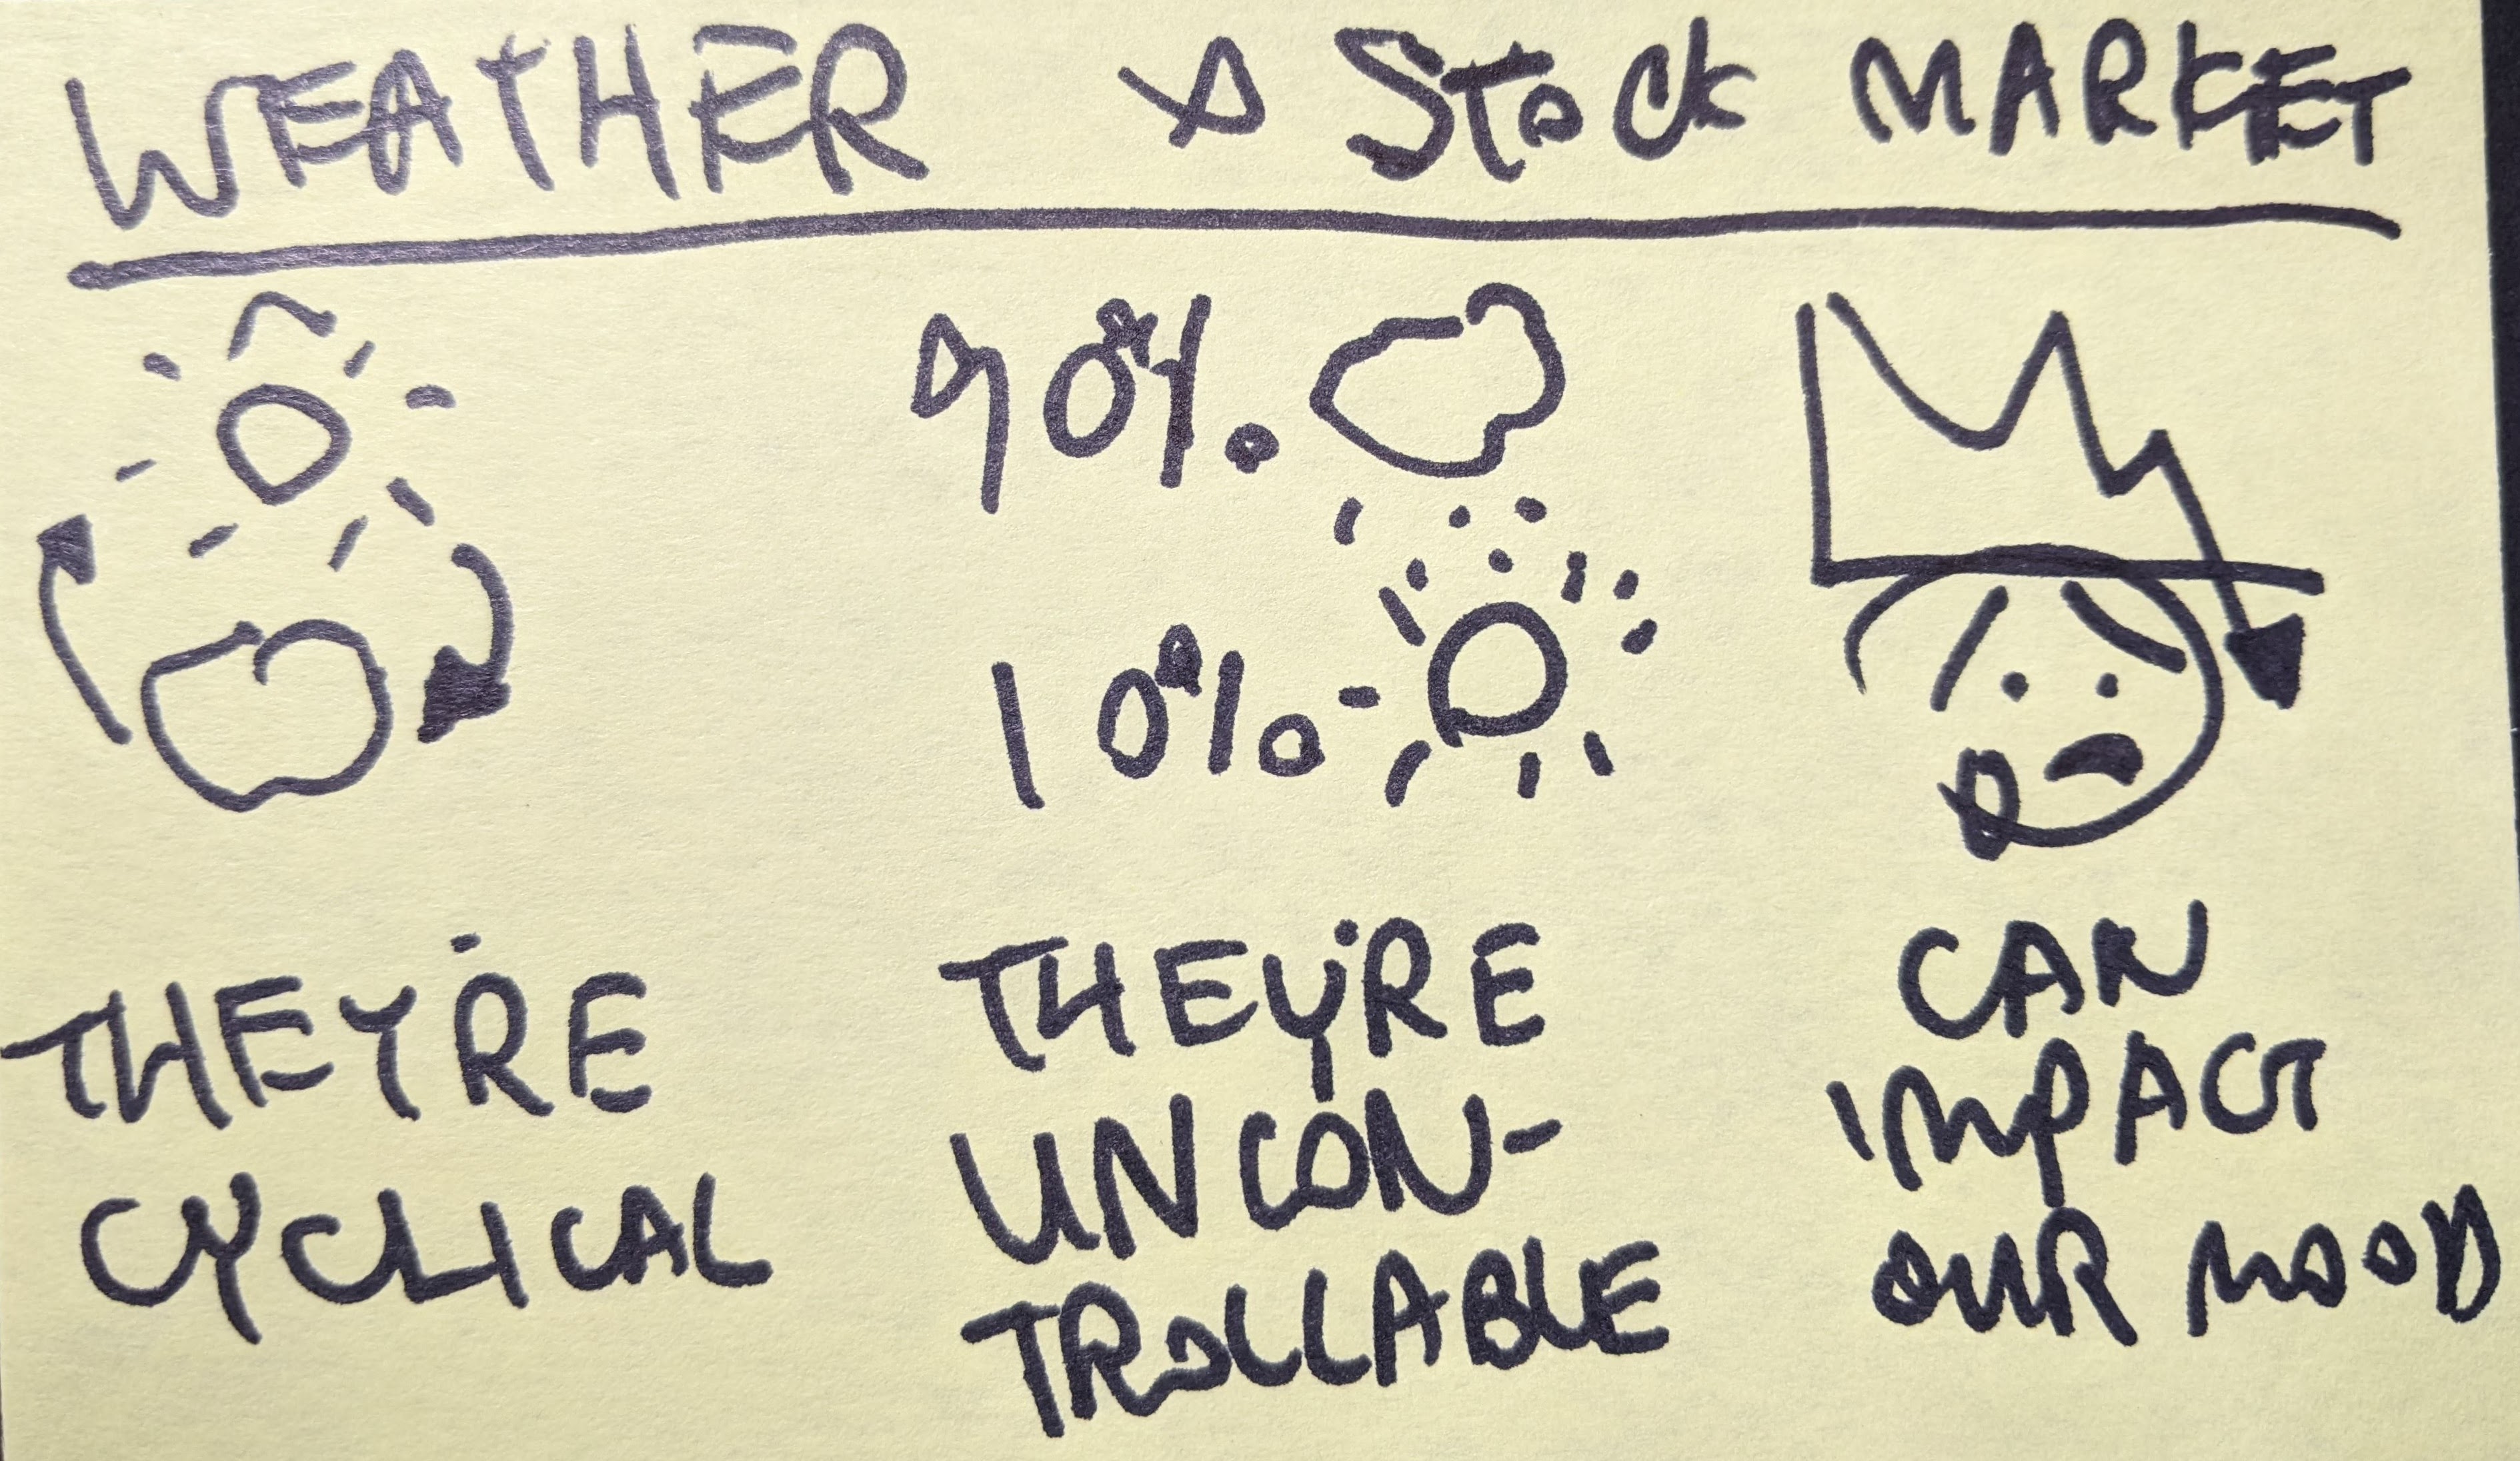 WEATHER & STOCK MARKET
90%
10%
THEY'RE
CYCLICAL
THEY'RE
UNCON-
TROLLABLE
CAN
IMPACT
OUR MOOD